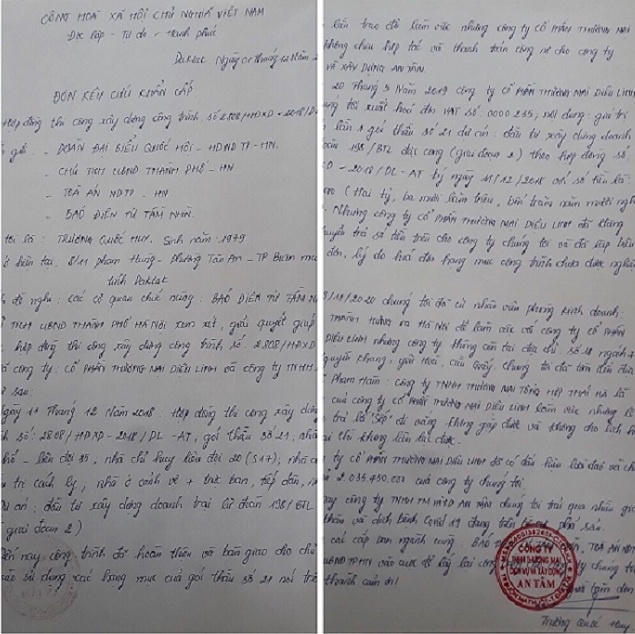 CỘNG HOÀ XÃ HỘI CHỦ NGHĨA VIỆT NAM
Độc lập - Tự do - Hạnh phúc
Daklak Ngày 01 Tháng 12 Năm 2
ĐƠN KÊU CỨU KHẨN CẤP
Hợp đồng thi công xây dựng công trình số 2808/HĐXD-2018/DL
gửi: - ĐOÀN ĐẠI BIỂU QUỐC HỘI - HĐND TP - HN.
- CHỦ TỊCH UBND THÀNH PHỐ - HN
- TOÀ ÁN NDTP - HN
- BÁO ĐIỆN TỬ TẦM NHÌN.
tôi là: TRƯƠNG QUỐC HUY. Sinh năm: 1979
hiện tại: 8/11 phạm Hùng - Phường Tân An - TP Buôn ma
tỉnh Daklak
đề nghị: các cơ quan chức năng: BÁO ĐIỆN TỬ TẦM N
TỊCH UBND THÀNH PHỐ HÀ NỘI xem xét, giải quyết giúp
hợp đồng thi công xây dựng công trình số: 2808/HĐXD
công ty: CỔ PHẦN THƯƠNG MẠI DIỆU LINH và công ty TNHH
sau:
ngày 11 Tháng 12 Năm 2018: Hợp đồng thi công xây dựng
số: 2808/HĐXD-2018/DL-AT, gói thầu số 21, nhà
- liên đội 35, nhà chỉ huy liên đội 20 (S17); nhà
canh lý; nhà ở vệ binh + trực ban, tiếp dân,
án: đầu tư xây dựng doanh trại lữ đoàn 198/BTL
giai đoạn 2)
Đến nay công trình đã hoàn thiện và bàn giao cho chủ
sử dụng các hạng mục của gói thầu số 21 nói trên
bản trao đổi làm việc nhưng công ty CỔ PHẦN THƯƠNG MẠI
không chịu hợp tác và thanh toán công nợ cho công ty
VÀ XÂY DỰNG AN TÂM.
20 Tháng 5 Năm 2019 công ty CỔ PHẦN THƯƠNG MẠI DIỆU LINH
tôi xuất hoá đơn VAT số: 0000235, nội dung: giá trị
lần 1 gói thầu số 21 dự án: đầu tư xây dựng doanh
198/BTL đặc công (giai đoạn 2) theo hợp đồng số
-2018/DL-AT ký ngày 11/12/2018 với số tiền là:
(Hai tỷ, ba mươi lăm triệu, bốn trăm năm mươi nghìn
Nhưng công ty CỔ PHẦN THƯƠNG MẠI DIỆU LINH đã không
trả số tiền trên cho công ty chúng tôi và
đơn, lý do hoá đơn hạng mục công trình chưa được nghiệm
/11/2020 chúng tôi đã cử nhân viên phòng kinh doanh:
THÀNH HƯNG ra HÀ NỘI để làm việc với công ty CỔ PHẦN
DIỆU LINH nhưng công ty không còn tại địa chỉ: số 11 ngách
nguyễn khang, Cầu Giấy. Chúng tôi đã tìm đến địa
Phạm Hàm: công ty TNHH THƯƠNG MẠI TỔNG HỢP THÁI HÀ là
của công ty CỔ PHẦN THƯƠNG MẠI DIỆU LINH làm việc nhưng
trả là "Sếp" đi vắng không gặp được và không cho lịch
thì không liên lạc được.
ty CỔ PHẦN THƯƠNG MẠI DIỆU LINH đã có dấu hiệu lừa đảo và
2.035.450.000 của công ty chúng tôi.
nay công ty TNHH TM VÀ XD AN TÂM chúng tôi trải qua nhiều
khăn và dịch bệnh Covid 19 đang trên phá sản.
các cấp ban ngành cùng BÁO TOÀ ÁN
UBND TP HN vào cuộc để lấy lại công ty chúng tôi
thành cảm ơn!
làm đơn
CÔNG TY
TNHH THƯƠNG MẠI
DỊCH VỤ VÀ XÂY DỰNG
AN TÂM
Trương Quốc Huy